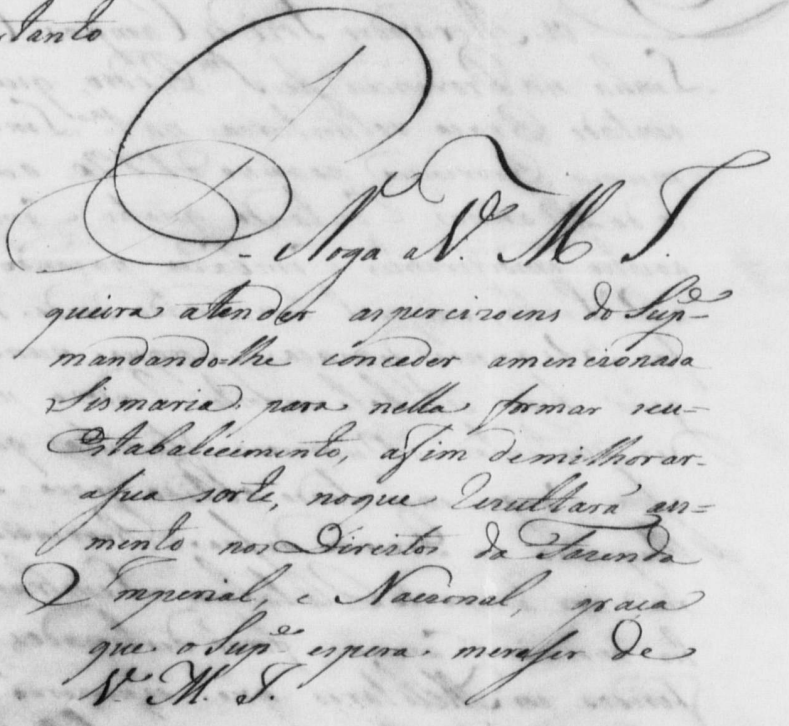 tanto
Roga a V. M. I.
queira atender as percizoens do Sup.e
mandando=lhe conceder amencionada
Sismaria para nella formar seu=
Estabalecimento, afim demilhorar
asua sorte, noque Rezultará au=
mento nos Direitos da Fazenda
Imperial, e Nacional, graça
que o Sup.e espera meresser de
V. M. I.